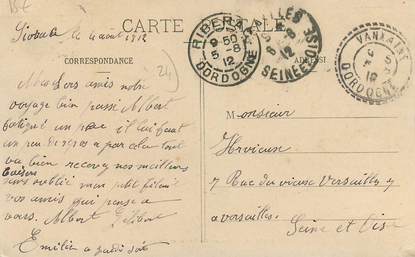 15E
CARTE POSTALE
Siorac le 4 aout 1912
CORRESPONDANCE
24
RIBERAC
9 50
5 -8
12
DORDOGNE
VERSAILLES
8 -8
12
SEINE ET OISE
VANXAINS
5
12
DORDOGNE
chers amis notre
voyage bien passé Albert
fatigué un peu il lui faut
un peu de repos a par cela tout
va bien recevez nos meilleurs
baisers
sans oublié mon petit filleul
vos amis qui pense a
vous. Albert
Emilie a
Monsieur
Hervieux
7 Rue du vieux Versailles 7
a versailles.
Seine et Oise